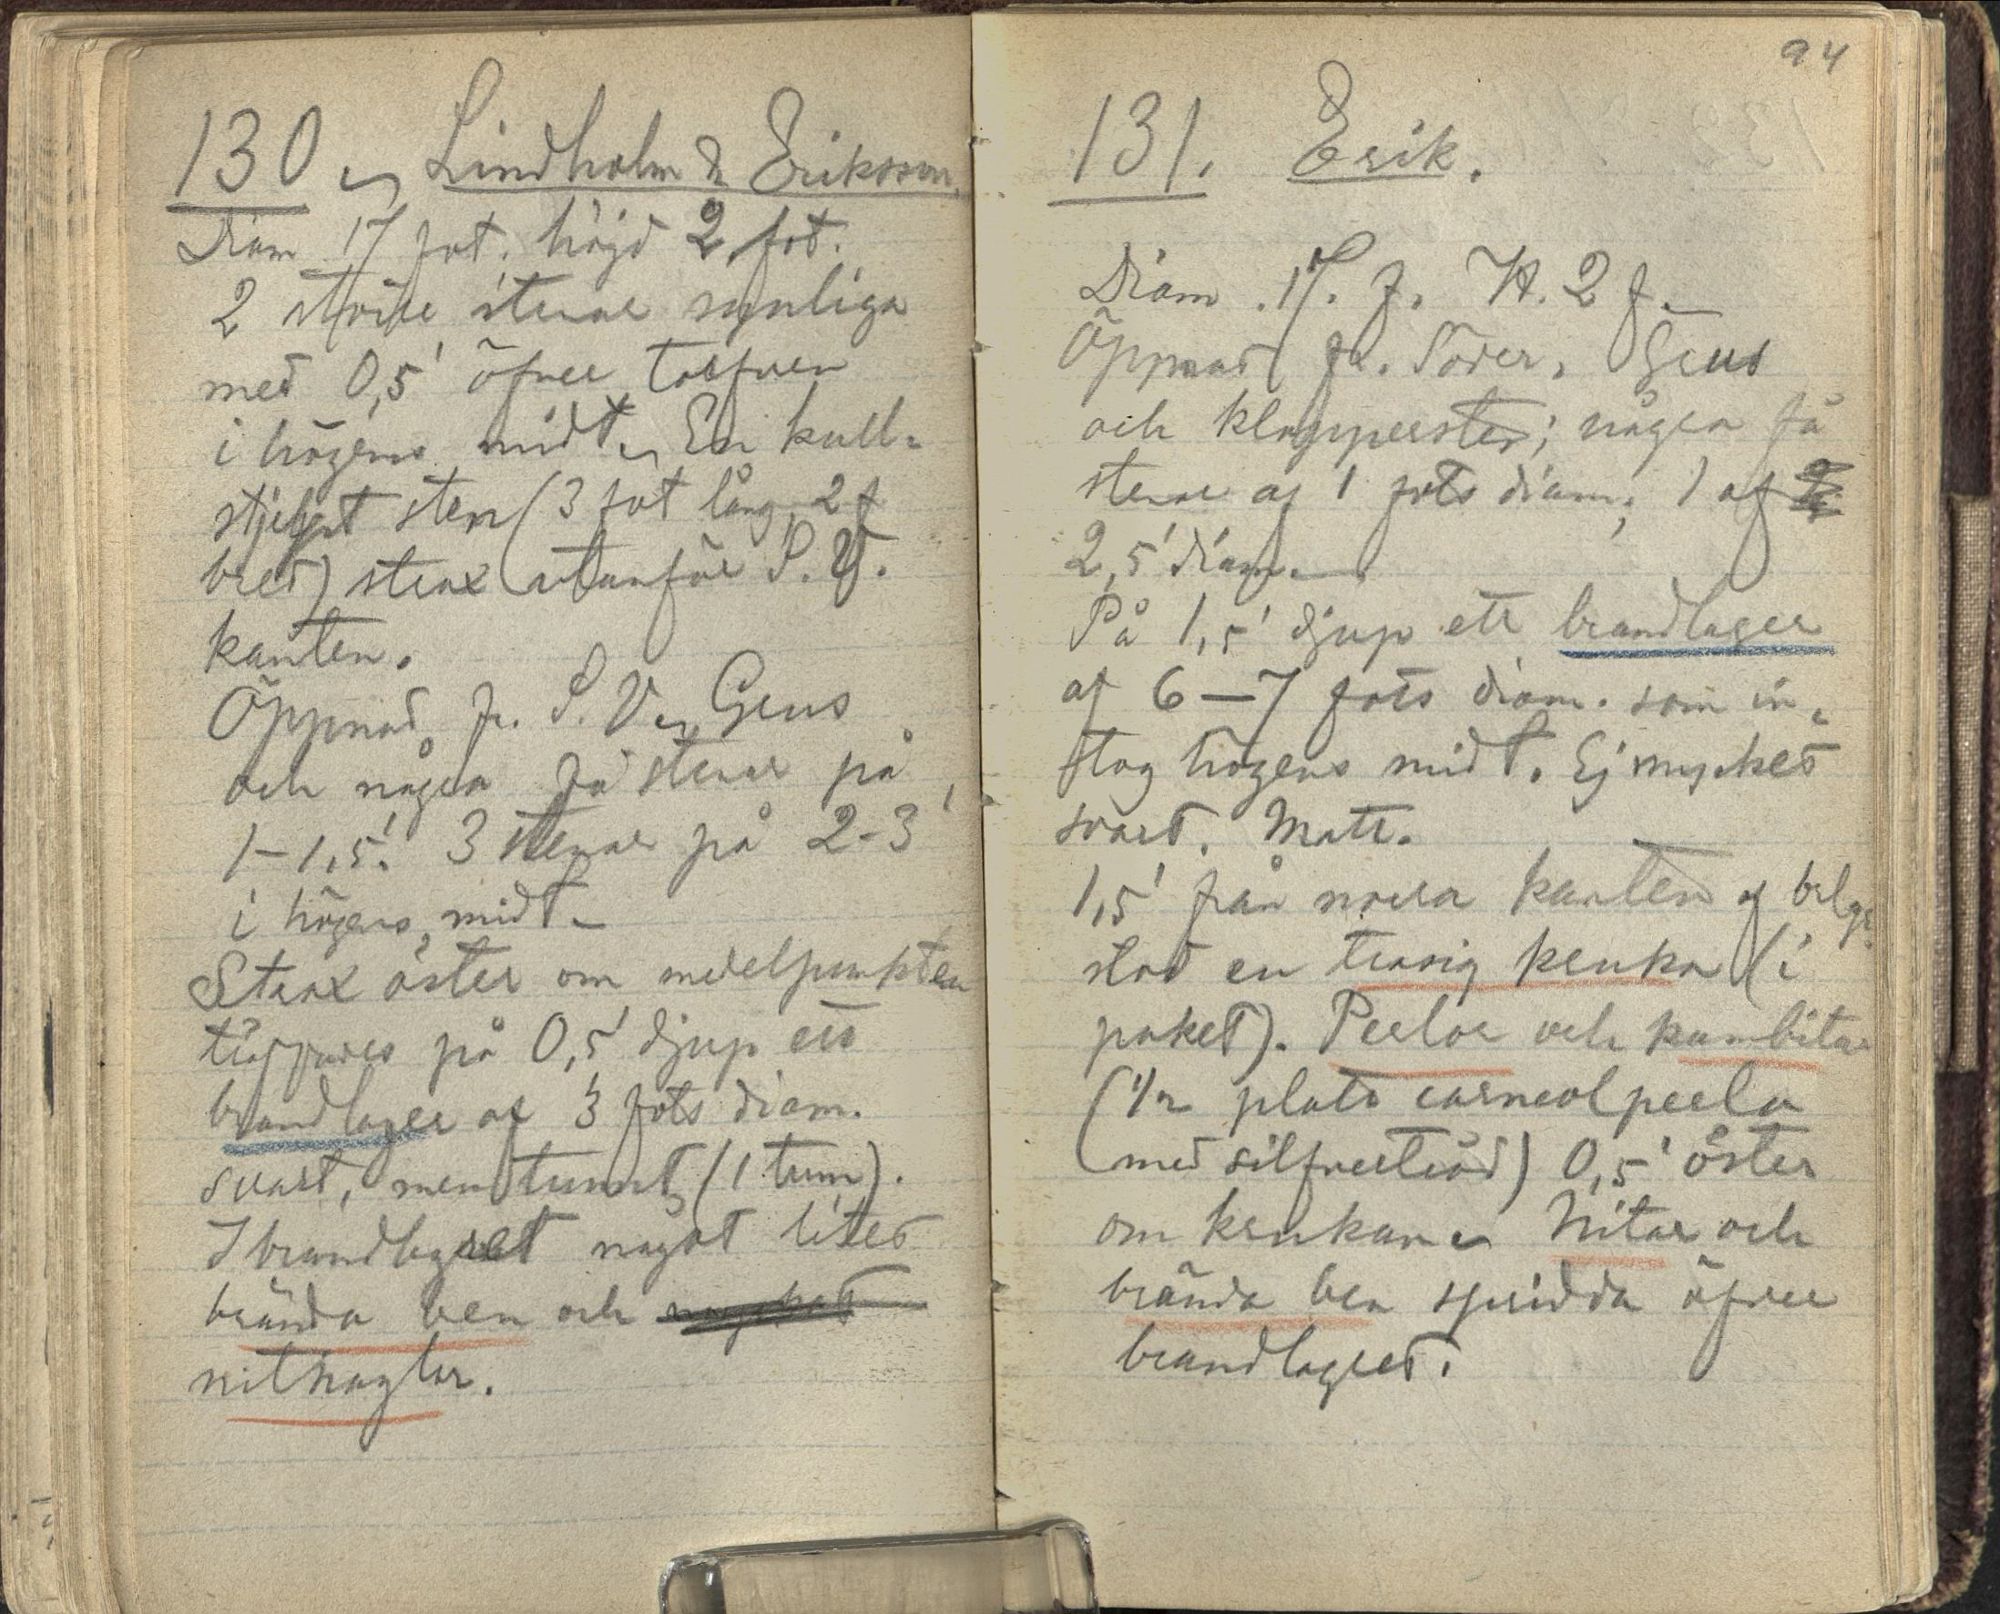 130 ~ Lindholm & Eriksson.
Diam 17 fot. höjd 2 fot.
2 större stenar synliga
med 0,5' öfver torfven
i högens midt ~ En kull-
stjelpt sten (3 fot lång, 2 f
bred) strax utanför S.V.
kanten.
Öppnad fr. S.V ~ Grus
och några få stenar på
1-1,5'. 3 stenar på 2-3'
i högens midt -
Strax öster om medelpunkten
träffades på 0,5' djup ett
brandlager af 3 fots diam.
svart, men tunnt (1 tum).
I brandlagret något litet
brända ben och
nitnaglar.
94
131. Erik.
Diam. 17. f. H. 2 f.
Öppnad fr. Söder. Grus
och klappersten; några få
stenar af 1 fots diam; 1 af
2,5' diam. -
På 1,5' djup ett brandlager
af 6-7 fots diam. som in-
tog högens midt. Ej mycket
svart. Matt.
1,5' från norra kanten af brlgr
stod en trasig kruka (i
paket). Perlor och kambitar
(1/2 platt carneolperla
med silfvertråd) 0,5' öster
om krukan ~ Nitar och
brända ben spridda öfver
brandlagret.